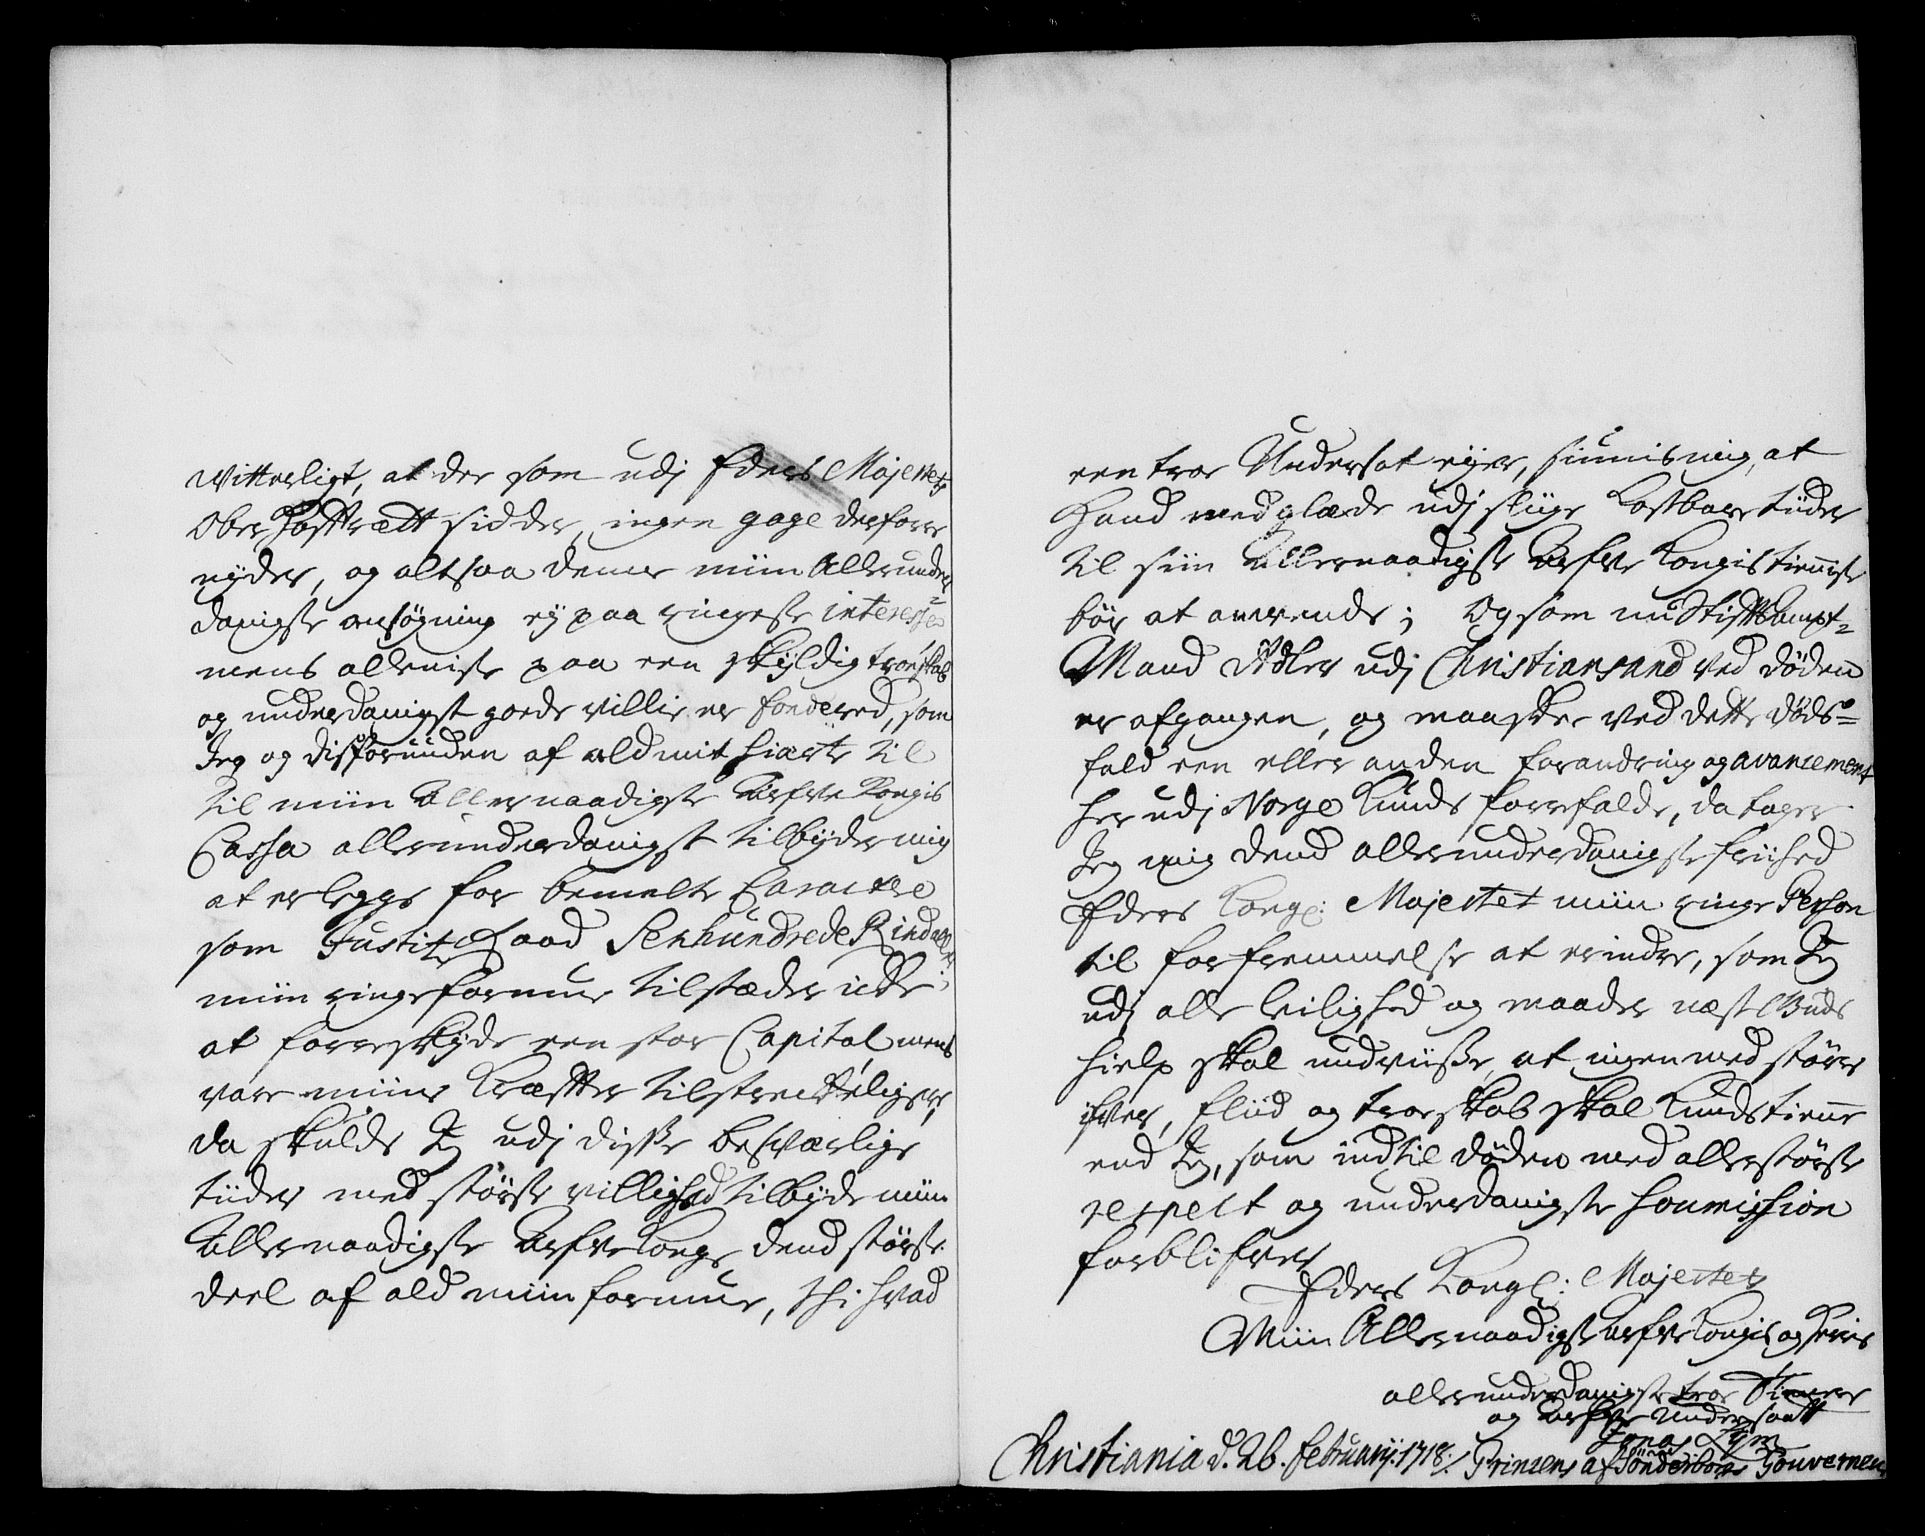 Witterligt, at der som udj Eders Majestets
Ober Hoffrætt sidder, ingen gage derforre
nyder, og altsaa denne miin Allerunder
danigste ansøgning ey paa ringeste interesse
mens alleniste paa een skyldig troeskab
og underdanigst goede villie er fondered, som
Jeg og disforuden af ald mit hiærte til
til miin Allernaadigste Arfve Kongis
Cassa allerunderdanigst tilbyder mig
at erlegge for bemelte Caractere
som Justitz Raad Senhundrede Rixdaller
miin ringe formue tilstæder icke
at forreskyde een stor Capital, mens
vare miine Kræffter tilstreckeligere,
da skulde Jeg udj disse besværlige
tiider med største villighed tilbyde miin
Allernaadigste Arfve Konge dend største
deel af ald miin formue, thi hvad
een troe Undersot eyer, siunis mig, at
Hand med glæde udj slige Kostbare tiider
til siin Allernaadigste Arfve Kongis tienniste
bør at anvende; Og som nu Stifftampt-
Mand Adler udj Christiansand ved døden
er afgangen, og maaskee ved dette døds-
fald een eller anden forandring og avancement
her udj Norge Kunde forrefalde, da tager
Jeg mig dend allerunderdanigste friihed
Eders Kongl: Majestet miin ringe Person
til forfremmelse at erindre, som Jeg
udj alle leilighed og maader næst Guds
hielp skal udviise, at ingen med større
ifver, fliid og troeskab skal Kunde tienne
end Jeg, som indtil døden med allerstørste
respect og underdanigste soumission
forblifver
Eders Kongl: Majestets
Miin Allernaadigste Arfve Kongis og Herris
allerunderdanigste troe Tienere
og Arfve Undersaatt
Jonas Lym
Christiania d. 26. februarij: 1718: / Prinzens af Sønderborgs Gouverneur